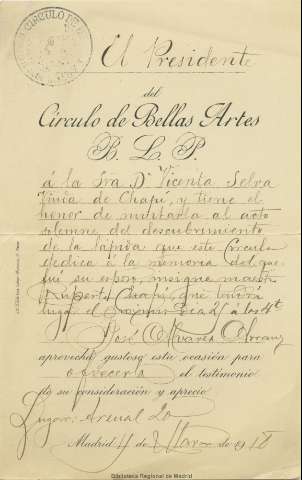 CIRCULO DE
El Presidente
del
Círculo de Bellas Artes
B. L. P.
á la Sra Dª Vicenta Selva
Viuda de Chapí, y tiene el
honor de invitarla al acto
solemne del descubrimiento
de la lápida que este Círculo
dedica á la memoria del que
fué su esposo, insigne maestro
Ruperto Chapí, que tendrá
lugar el
José Alvarez
aprovecha gustoso esta ocasión para
ofrecerla el testimonio
de su consideración y aprecio
Lugar: Arenal 20
Madrid 11 de de 191
Biblioteca Regional de Madrid